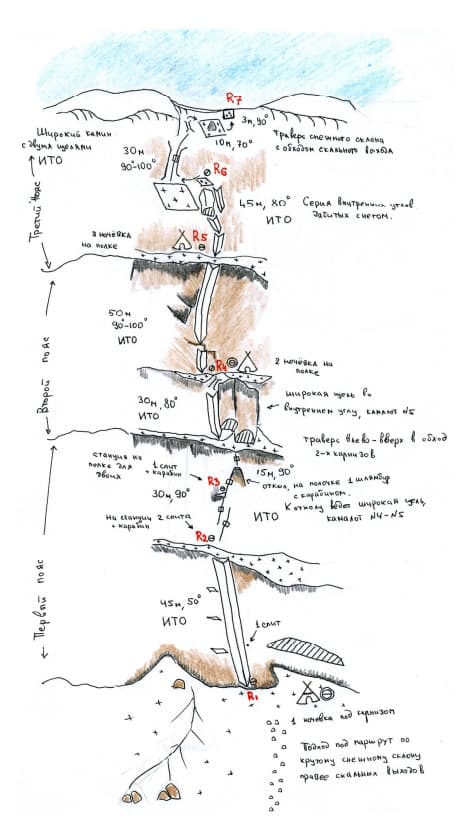 R7
3м, 90°
10м, 70°
Широкий камин
с двумя щелями
ИТО
30м
90°-100°
Траверс снежного склона
с обходом скального выхода
R6
45м, 80°
ИТО
Серия внутренних углов
забитых снегом.
Третий пояс
3 ночёвка
на полке
R5
50м
90°-100°
ИТО
Второй пояс
R4
2 ночёвка на
полке
30м, 80°
ИТО
широкая щель во
внутреннем углу, камалот N5
траверс влево-вверх в обход
2-х карнизов
станция на
полке для
двоих
1 спит
+ карабин
R3
30м, 90°
15м, 90°
откол, на полочке 1 шлямбур
с карабином.
К отколу ведёт широкая щель,
камалот N4-N5
ИТО
На станции 2 спита
+ карабин
R2
Первый пояс
45м, 50°
ИТО
1 спит
R1
1 ночевка под карнизом
Подход под маршрут по
крутому снежному склону
правее скальных выходов